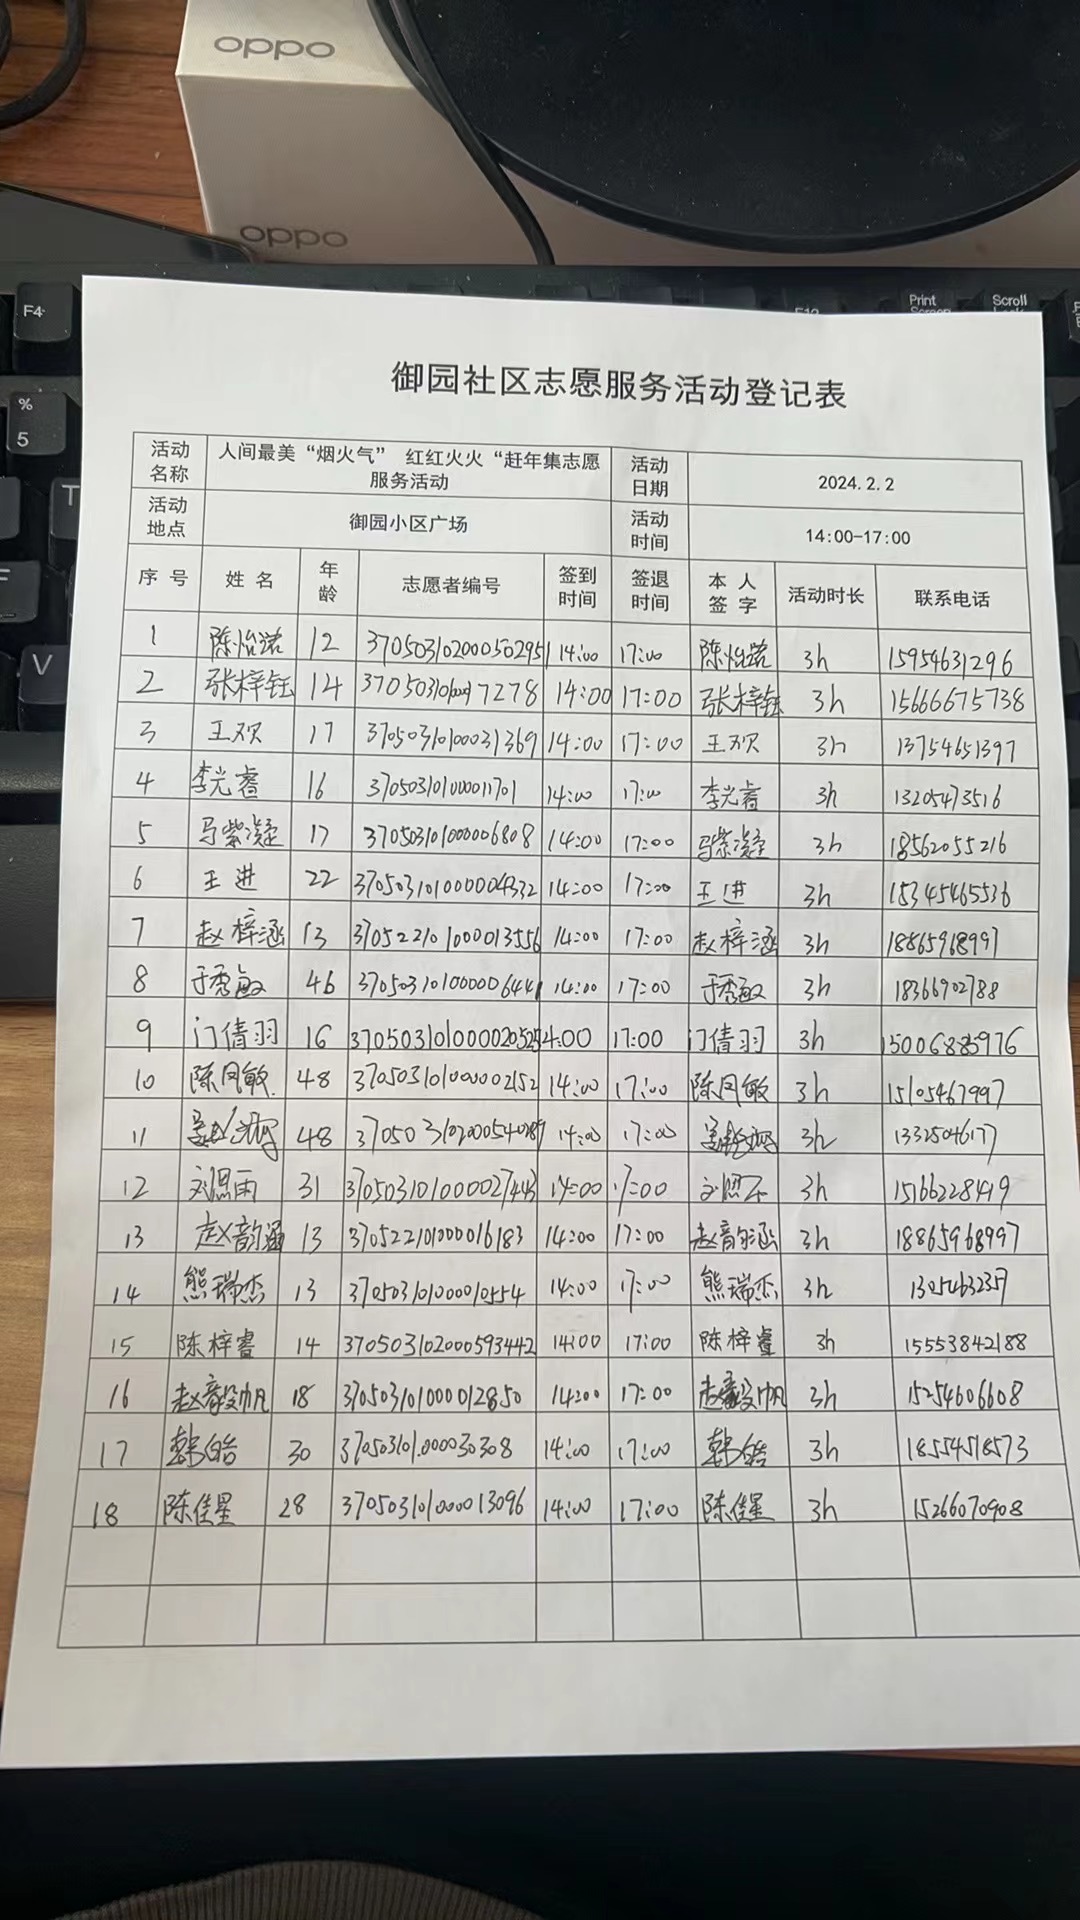 oppo
oppo
F4
Print
Scroll
% 5
T
F
V
御园社区志愿服务活动登记表
活动名称 人间最美“烟火气” 红红火火“赶年集志愿服务活动 活动日期 2024.2.2
活动地点 御园小区广场 活动时间 14:00-17:00
序号 姓名 年龄 志愿者编号 签到时间 签退时间 本人签字 活动时长 联系电话
1 陈怡诺 12 3705031020000502951 14:00 17:00 陈怡诺 3h 15954631296
2 张梓钰 14 14:00 17:00 张梓钰 3h 15666675738
3 王欢 17 370503101000031369 14:00 17:00 王欢 3h 13754651397
4 李光睿 16 370503101000011701 14:00 17:00 李光睿 3h 13205473516
5 马紫凝 17 37050310100006808 14:00 17:00 马紫凝 3h 18562055216
6 王进 22 370503101000004332 14:00 17:00 王进 3h 15345465536
7 赵梓涵 13 370522101000013556 14:00 17:00 赵梓涵 3h 18865968997
8 于秀敏 46 370503101000006441 14:00 17:00 于秀敏 3h 18366902788
9 门倩羽 16 14:00 17:00 门倩羽 3h 15006885976
10 陈凤敏 48 370503101000002152 14:00 17:00 陈凤敏 3h 15105467997
11 48 14:00 17:00 3h
12 刘恩雨 31 14:00 17:00 3h 15166228419
13 赵韵涵 13 370522101000016183 14:00 17:00 赵韵涵 3h 18865968997
14 熊瑞杰 13 370503101000010554 14:00 17:00 熊瑞杰 3h
15 陈梓睿 14 370503102000593442 14:00 17:00 陈梓睿 3h 15553842188
16 赵毅帆 18 370503101000012850 14:00 17:00 赵毅帆 3h 15254606608
17 韩皓 30 37050310100030308 14:00 17:00 韩皓 3h 18554518573
18 陈佳星 28 370503101000013096 14:00 17:00 陈佳星 3h 15266070908